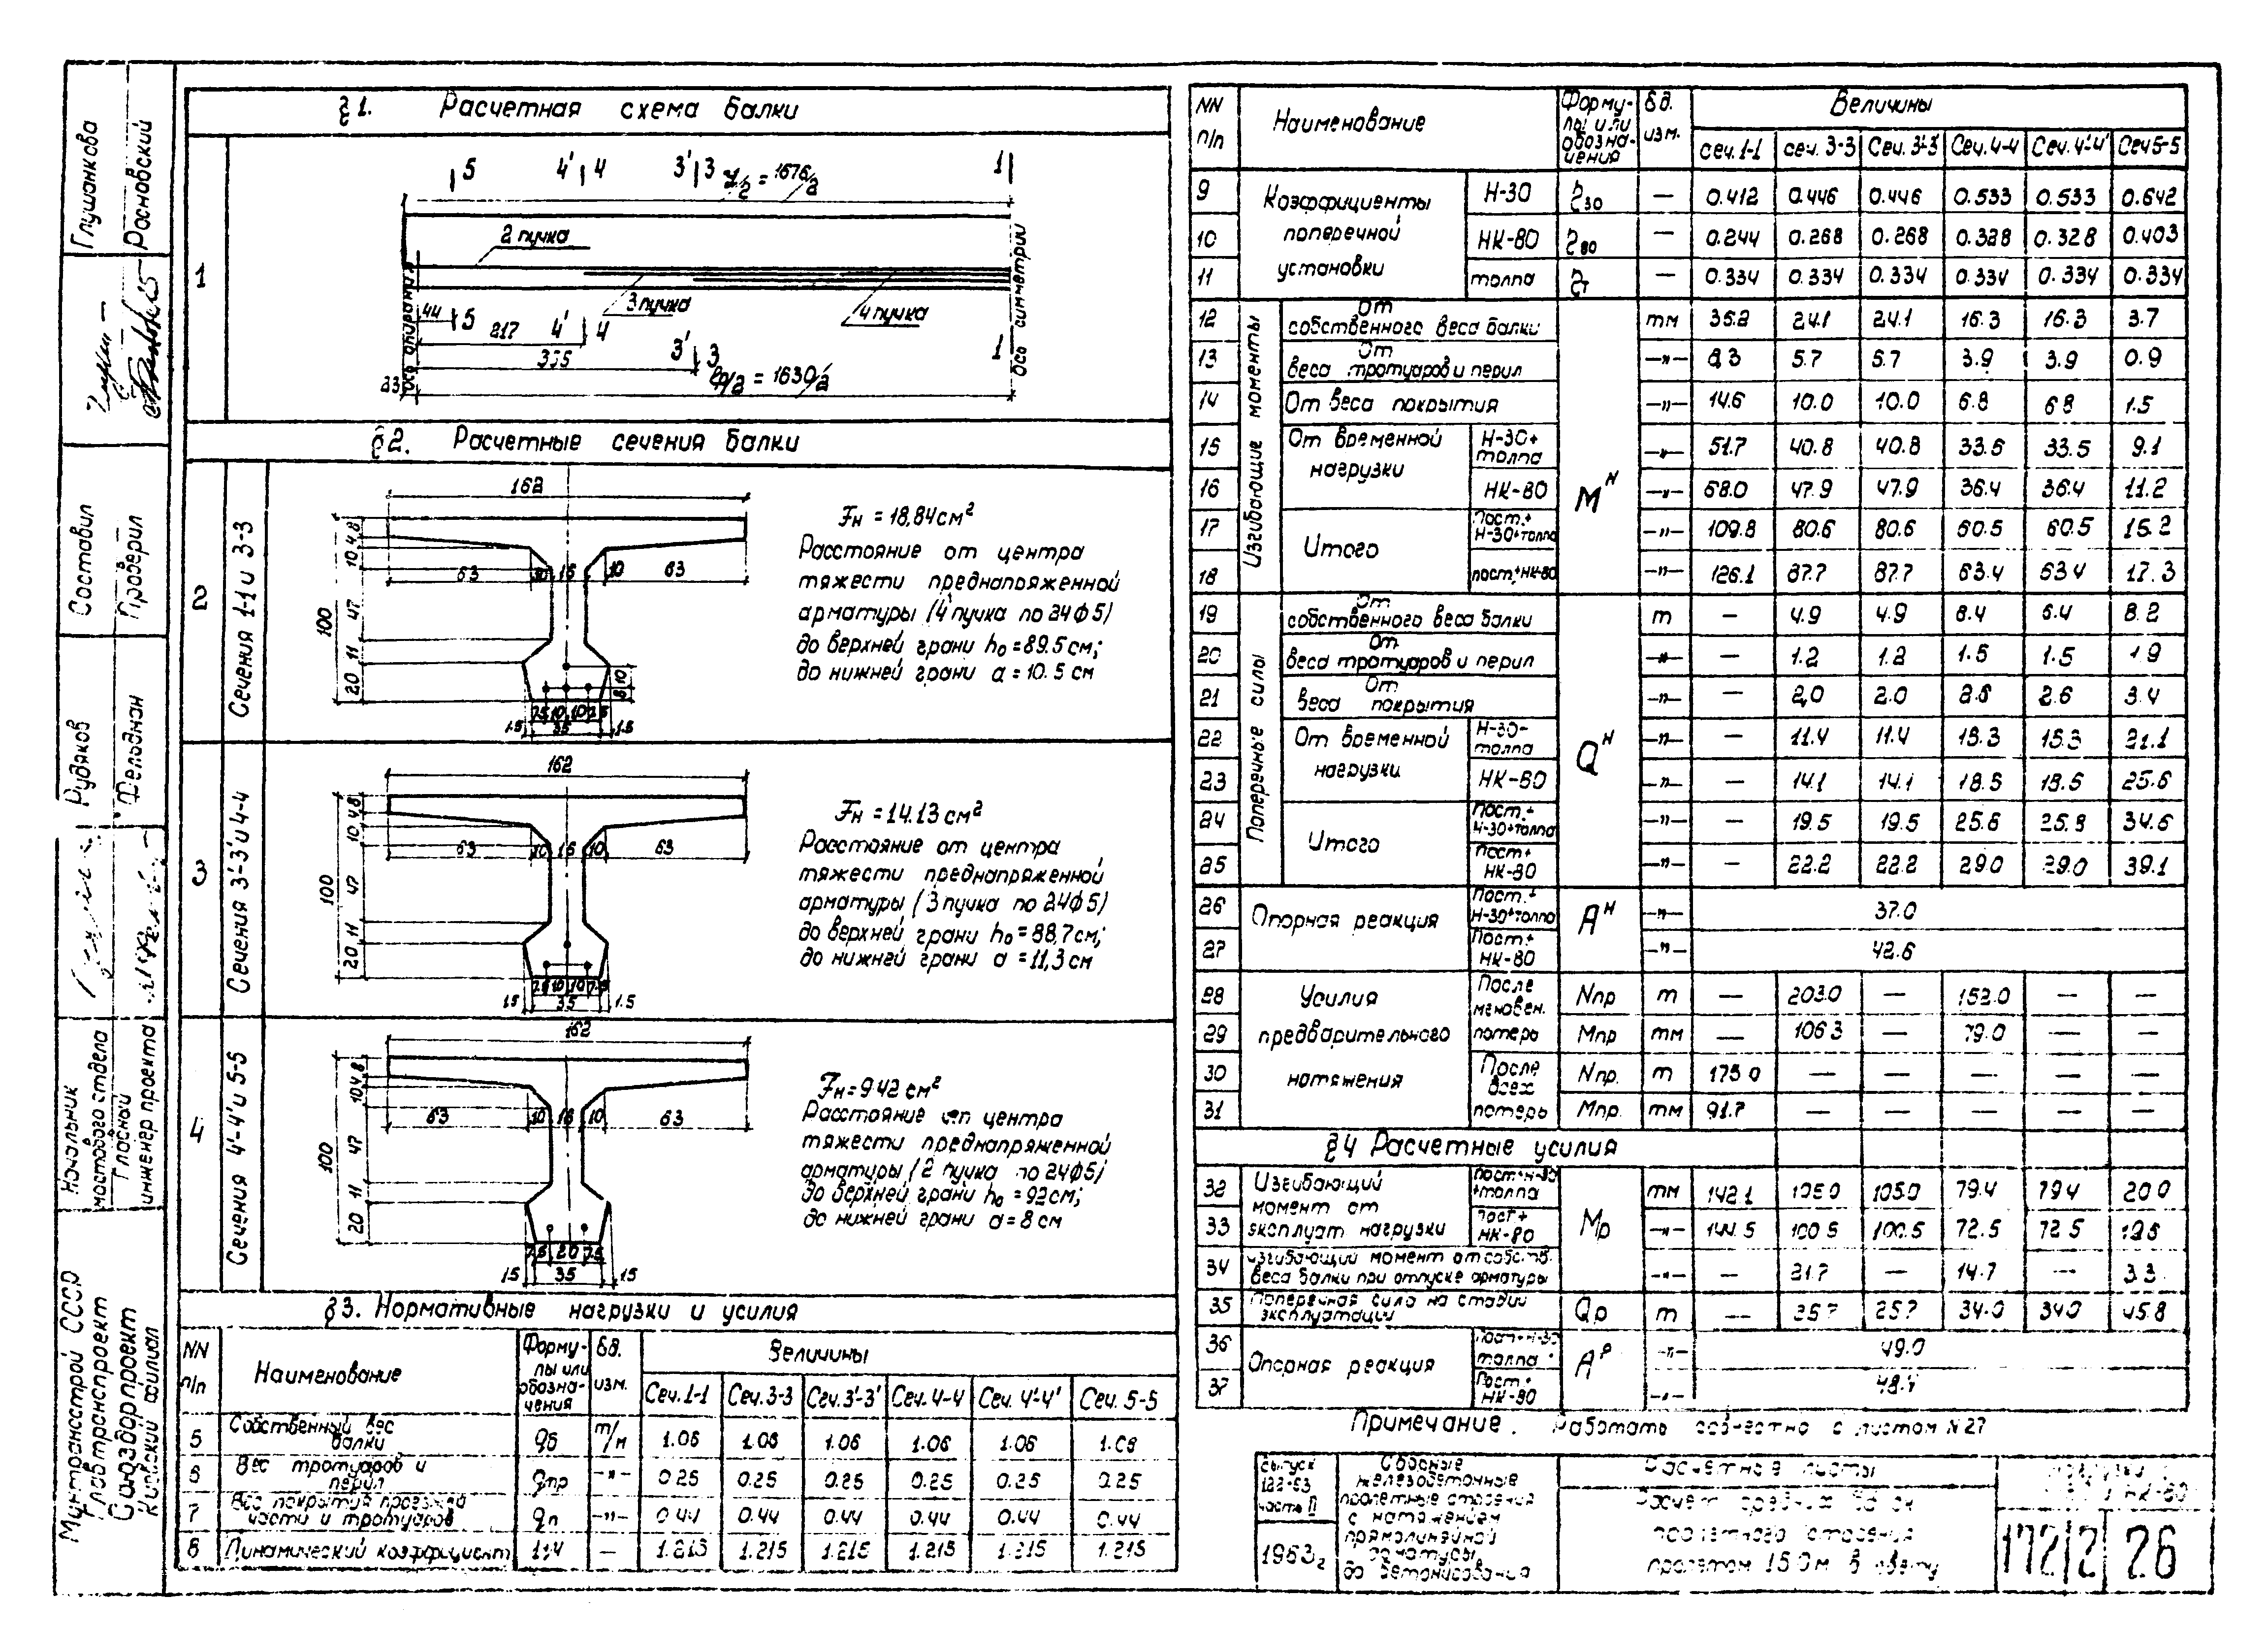 Глушанкова
Росновский
Составил
Проверил
Рудяков
Фельдман
Начальник
мостового отдела
Главный
инженер проекта
Минтрансстрой СССР
Главтранспроект
Союздорпроект
Киевский филиал
§1. Расчетная схема балки
1
5 4' 4 3' 3 1
ℓ/2 = 1676/2
2 пучка
3 пучка
4 пучка
44 5
217 4' 4
335 3' 3 1
23
ℓр/2 = 1630/2
Ось опирания
Ось симметрии
§2. Расчетные сечения балки
2
Сечения 1-1 и 3-3
162
63 10 16 10 63
100
10 4.8
47
11
20
8 10
7.5 10 10 7.5
1.5 35 1.5
Fн = 18,84 см²
Расстояние от центра
тяжести преднапряженной
арматуры (4 пучка по 24ф5)
до верхней грани h₀ = 89.5 см;
до нижней грани а = 10.5 см
3
Сечения 3'-3' и 4-4
162
63 10 16 10 63
100
10 4.8
47
11
20
7.5 10 10 7.5
1.5 35 1.5
Fн = 14.13 см²
Расстояние от центра
тяжести преднапряженной
арматуры (3 пучка по 24ф5)
до верхней грани h₀ = 88,7 см;
до нижней грани а = 11,3 см
4
Сечения 4'-4' и 5-5
162
63 10 16 10 63
100
10 4.8
47
11
20
7.5 20 7.5
1.5 35 1.5
Fн = 9.42 см²
Расстояние от центра
тяжести преднапряженной
арматуры (2 пучка по 24ф5)
до верхней грани h₀ = 92 см;
до нижней грани а = 8 см
§3. Нормативные нагрузки и усилия
NN п/п Наименование Формулы или обозначения Ед. изм. Величины
Сеч. 1-1 Сеч. 3-3 Сеч. 3'-3' Сеч. 4-4 Сеч. 4'-4' Сеч. 5-5
5 Собственный вес балки qб т/м 1.06 1.06 1.06 1.06 1.06 1.06
6 Вес тротуаров и перил qтр —"— 0.25 0.25 0.25 0.25 0.25 0.25
7 Вес покрытия проезжей части и тротуаров qп —"— 0.44 0.44 0.44 0.44 0.44 0.44
8 Динамический коэффициент 1+μ — 1.215 1.215 1.215 1.215 1.215 1.215
NN п/п Наименование Формулы или обозначения Ед. изм. Величины
сеч. 1-1 сеч. 3-3 Сеч. 3'-3' Сеч. 4-4 Сеч. 4'-4' Сеч 5-5
Коэффициенты поперечной установки
9 Н-30 ξ30 — 0.412 0.446 0.446 0.533 0.533 0.642
10 НК-80 ξ80 — 0.244 0.268 0.268 0.328 0.328 0.403
11 толпа ξт — 0.334 0.334 0.334 0.334 0.334 0.334
Изгибающие моменты Mᴴ
12 От собственного веса балки тм 35.2 24.1 24.1 16.3 16.3 3.7
13 От веса тротуаров и перил —"— 8.3 5.7 5.7 3.9 3.9 0.9
14 От веса покрытия —"— 14.6 10.0 10.0 6.8 6.8 1.5
От временной нагрузки
15 Н-30+ толпа —"— 51.7 40.8 40.8 33.5 33.5 9.1
16 НК-80 —"— 68.0 47.9 47.9 36.4 36.4 11.2
Итого
17 Пост.+ Н-30+толпа —"— 109.8 80.6 80.6 60.5 60.5 15.2
18 пост.+НК-80 —"— 126.1 87.7 87.7 63.4 63.4 17.3
Поперечные силы Qᴴ
19 От собственного веса балки т — 4.9 4.9 6.4 6.4 8.2
20 От веса тротуаров и перил —"— — 1.2 1.2 1.5 1.5 1.9
21 От веса покрытия —"— — 2,0 2.0 2.6 2.6 3.4
От временной нагрузки
22 Н-30- толпа —"— — 11.4 11.4 15.3 15.3 21.1
23 НК-80 —"— — 14.1 14.1 18.5 18.5 25.6
Итого
24 Пост.+ Н-30+толпа —"— — 19.5 19.5 25.8 25.8 34.6
25 Пост+ НК-80 —"— — 22.2 22.2 29.0 29.0 39.1
Опорная реакция Aᴴ
26 Пост.+ Н-30+толпа —"— 37.0
27 Пост+ НК-80 —"— 42.6
Усилия предварительного натяжения
После мгновен. потерь
28 Nпр т — 203.0 — 152.0 — —
29 Мпр тм — 106.3 — 79.0 — —
После всех потерь
30 Nпр. т 175.0 — — — — —
31 Мпр. тм 91.7 — — — — —
§4 Расчетные усилия
Изгибающий момент от эксплуат нагрузки Мр
32 Пост+Н-30 +толпа тм 142.1 105.0 105.0 79.4 79.4 20.0
33 Пост+ НК-80 —"— 144.5 100.5 100.5 72.5 72.5 19.8
34 Изгибающий момент от собств. веса балки при отпуске арматуры —"— — 21.7 — 14.7 — 3.3
35 Поперечная сила на стадии эксплуатации Qр т — 25.7 25.7 34.0 34.0 45.8
Опорная реакция Aᴾ
36 Пост+Н-30 толпа —"— 49.0
37 Пост.+ НК-80 —"— 48.4
Примечание. Работать совместно с листом N 27
Выпуск
122-63
часть II
1963г
Сборные
железобетонные
пролетные строения
с натяжением
прямолинейной
арматуры
до бетонирования
Расчетные листы
Расчет средних балок
пролетного строения
пролетом 15.0 м в свету
НК-80
172/2 26